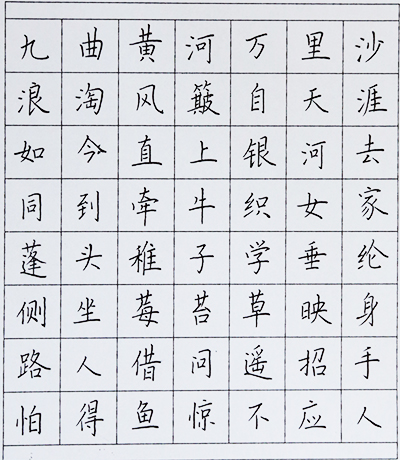 九曲黄河万里沙
浪淘风簸自天涯
如今直上银河去
同到牵牛织女家
蓬头稚子学垂纶
侧坐莓苔草映身
路人借问遥招手
怕得鱼惊不应人